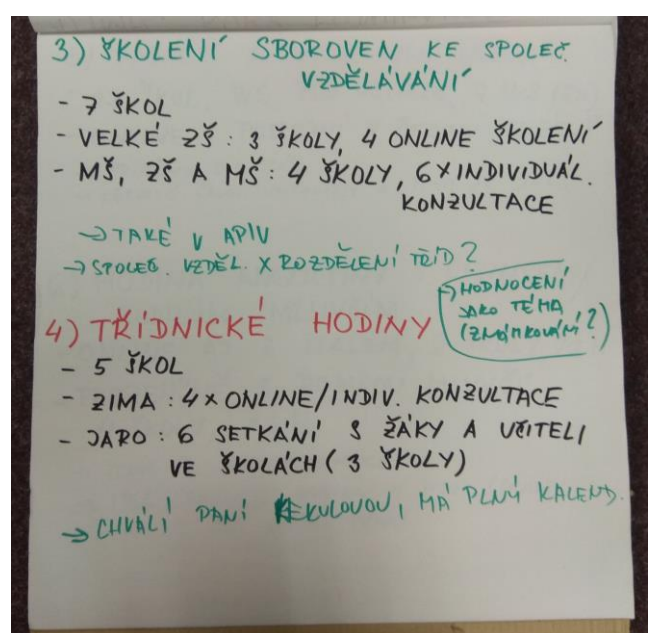 3) ŠKOLENÍ SBOROVEN KE SPOLEČ.
VZDĚLÁVÁNÍ
- 7 ŠKOL
- VELKÉ ZŠ : 3 ŠKOLY, 4 ONLINE ŠKOLENÍ
- MŠ, ZŠ A MŠ : 4 ŠKOLY, 6 X INDIVIDUÁL.
KONZULTACE
→ TAKÉ V APIV
→ SPOLEČ. VZDĚL. X ROZDĚLENÍ TŘÍD ?
→ HODNOCENÍ
JAKO TÉMA
(ZNÁMKOVÁNÍ ?)
4) TŘÍDNICKÉ HODINY
- 5 ŠKOL
- ZIMA : 4 x ONLINE/INDIV. KONZULTACE
- JARO : 6 SETKÁNÍ S ŽÁKY A UČITELI
VE ŠKOLÁCH ( 3 ŠKOLY)
→ CHVÁLÍ PANÍ KEKULOVOU, MÁ PLNÝ KALEND.